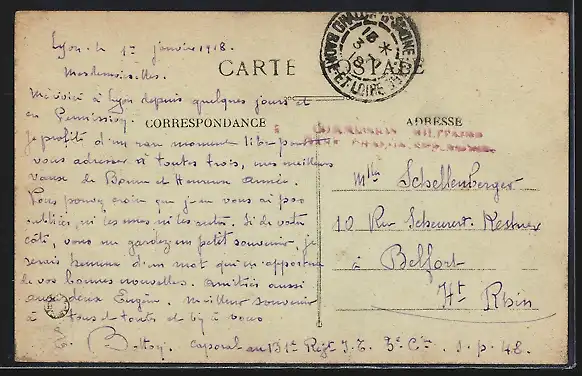 Lyon le 1er janvier 1918.
Mesdemoiselles.
CARTE POSTALE
CHALON-S-SAONE
SAONE-ET-LOIRE
CORRESPONDANCE
ADRESSE
COMMISSION MILITAIRE
Me voici à Lyon depuis quelques jours et
en Permission.
Je profite d'un rare moment libre pour
vous adresser à toutes trois, mes meilleurs
vœux de Bonne et Heureuse année.
Vous pouvez croire que je ne vous ai pas
oubliées, ni les unes ni les autres. Si de votre
côté, vous me gardez un petit souvenir, je
serais heureux d'un mot qui m'apportera
de vos bonnes nouvelles. Amitiés aussi
aux deux Eugène. Meilleur souvenir
à tous et toutes et à vous
caporal au 131e Régt I. T. 5e Cie. s.p. 48.
Mlles Schellenberger
10 Rue Scheurer Kestner
à Belfort
Ht Rhin